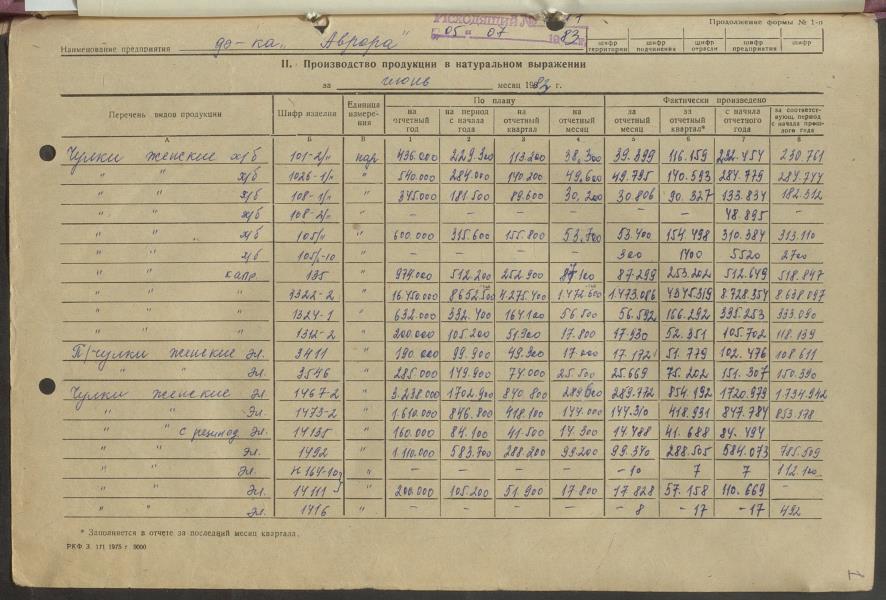 Исходящий №
"05" 07 1983 г.
Продолжение формы № 1-п
Наименование предприятия ф-ка „Аврора"
шифр территории шифр подчинения шифр отрасли шифр предприятия шифр
II. Производство продукции в натуральном выражении
за июнь месяц 1983 г.
Перечень видов продукции Шифр изделия Единица измерения По плану Фактически произведено
на отчетный год на период с начала года на отчетный квартал на отчетный месяц за отчетный месяц за отчетный квартал* с начала отчетного года за соответствующ. период с начала прошлого года
А Б В 1 2 3 4 5 6 7 8
Чулки женские х/б 101-2/н пар 436.000 229.300 113.200 38.300 39.399 116.159 232.454 230.761
" " х/б 1026-1/н " 540.000 284.000 140.200 49.600 49.795 140.593 284.779 284.744
" " х/б 108-1/н " 345.000 181.500 89.600 30.200 30.806 90.327 133.834 182.312
" " х/б 108-2/н " – – – – – – 48.895 –
" " х/б 105/н " 600.000 315.600 155.800 53.700 53.400 154.498 310.384 313.110
" " х/б 105/-10 " 300 1400 5520 2700
" " капр. 135 " 974.000 512.200 252.900 87.100 87.299 253.202 512.649 518.847
" " " 1322-2 " 16.450.000 8652.500 4.275.400 1.472.600 1.473.086 4345319 8.728.354 8.638.097
" " " 1324-1 " 632.000 332.400 164.100 56.500 56.592 166.292 335.253 333.090
" " " 1312-2 " 200.000 105.200 51.900 17.800 17.930 52.351 105.702 118.139
П/-чулки женские эл. 3411 " 190.000 99.900 49.300 17.000 17.172 51.779 102.476 108.611
" " эл. 3546 " 285.000 149.900 74.000 25.500 25.669 75.202 151.307 150.390
Чулки женские эл 1467-2 " 3.238.000 1702.900 840.800 289.600 289.772 854.192 1720.979 1.734.942
" " эл. 1473-2 " 1.610.000 846.800 418.100 144.000 144.310 418.931 847.784 853.178
" " эл. 14135 " 160.000 84.100 41.500 14.300 14.488 41.688 84.494
" " эл. 1492 " 1.110.000 583.700 288.200 99.200 99.340 288.505 584.073 785.509
" " эл. " – – – – -10 7 7 112.100
" " эл. 14111 " 200.000 105.200 51.900 17.800 17.828 57.158 110.669 –
" " эл. 1416 " – – – – - 8 - 17 - 17 492
* Заполняется в отчете за последний месяц квартала.
РКФ З. 171 1975 г. 9000